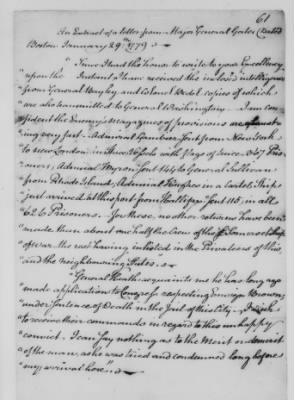 61
An Extract of a letter from Major General Gates (Dated
Boston January 29th 1779)
"Since I had the honor to write to your Excellency
"upon the Instant I have received the inclosed intelligence
"from General Bayley and Colonel Bedel copies of which
"are also transmitted to General Washington I am con=
"fident the Enemy's Magazines of provisions are
"ing very fast Admiral Gambier sent from New York
"to New London in
"oners, Admiral Byron sent 140 to General Sullivan
"from Rhode Island, Admiral in a Cartel Ship
"just arrived at this port from sent 115, in all
"626 Prisoners. For these, no other returns have been
"made than about one half the Crew of the Somerset Ship
"of war the rest having inlisted in the Privateers of this
"and the neighbouring States".
"General Heath acquaints me he has long ago
"made application to Congress respecting Ensign Brown,
"under Sentence of Death in the Goal of this City I wish
"to receive their commands in regard to this unhappy
"convict. I can say nothing as to the Merit or demerit
"of the man, who was tried and condemned long before
"my arrival here"